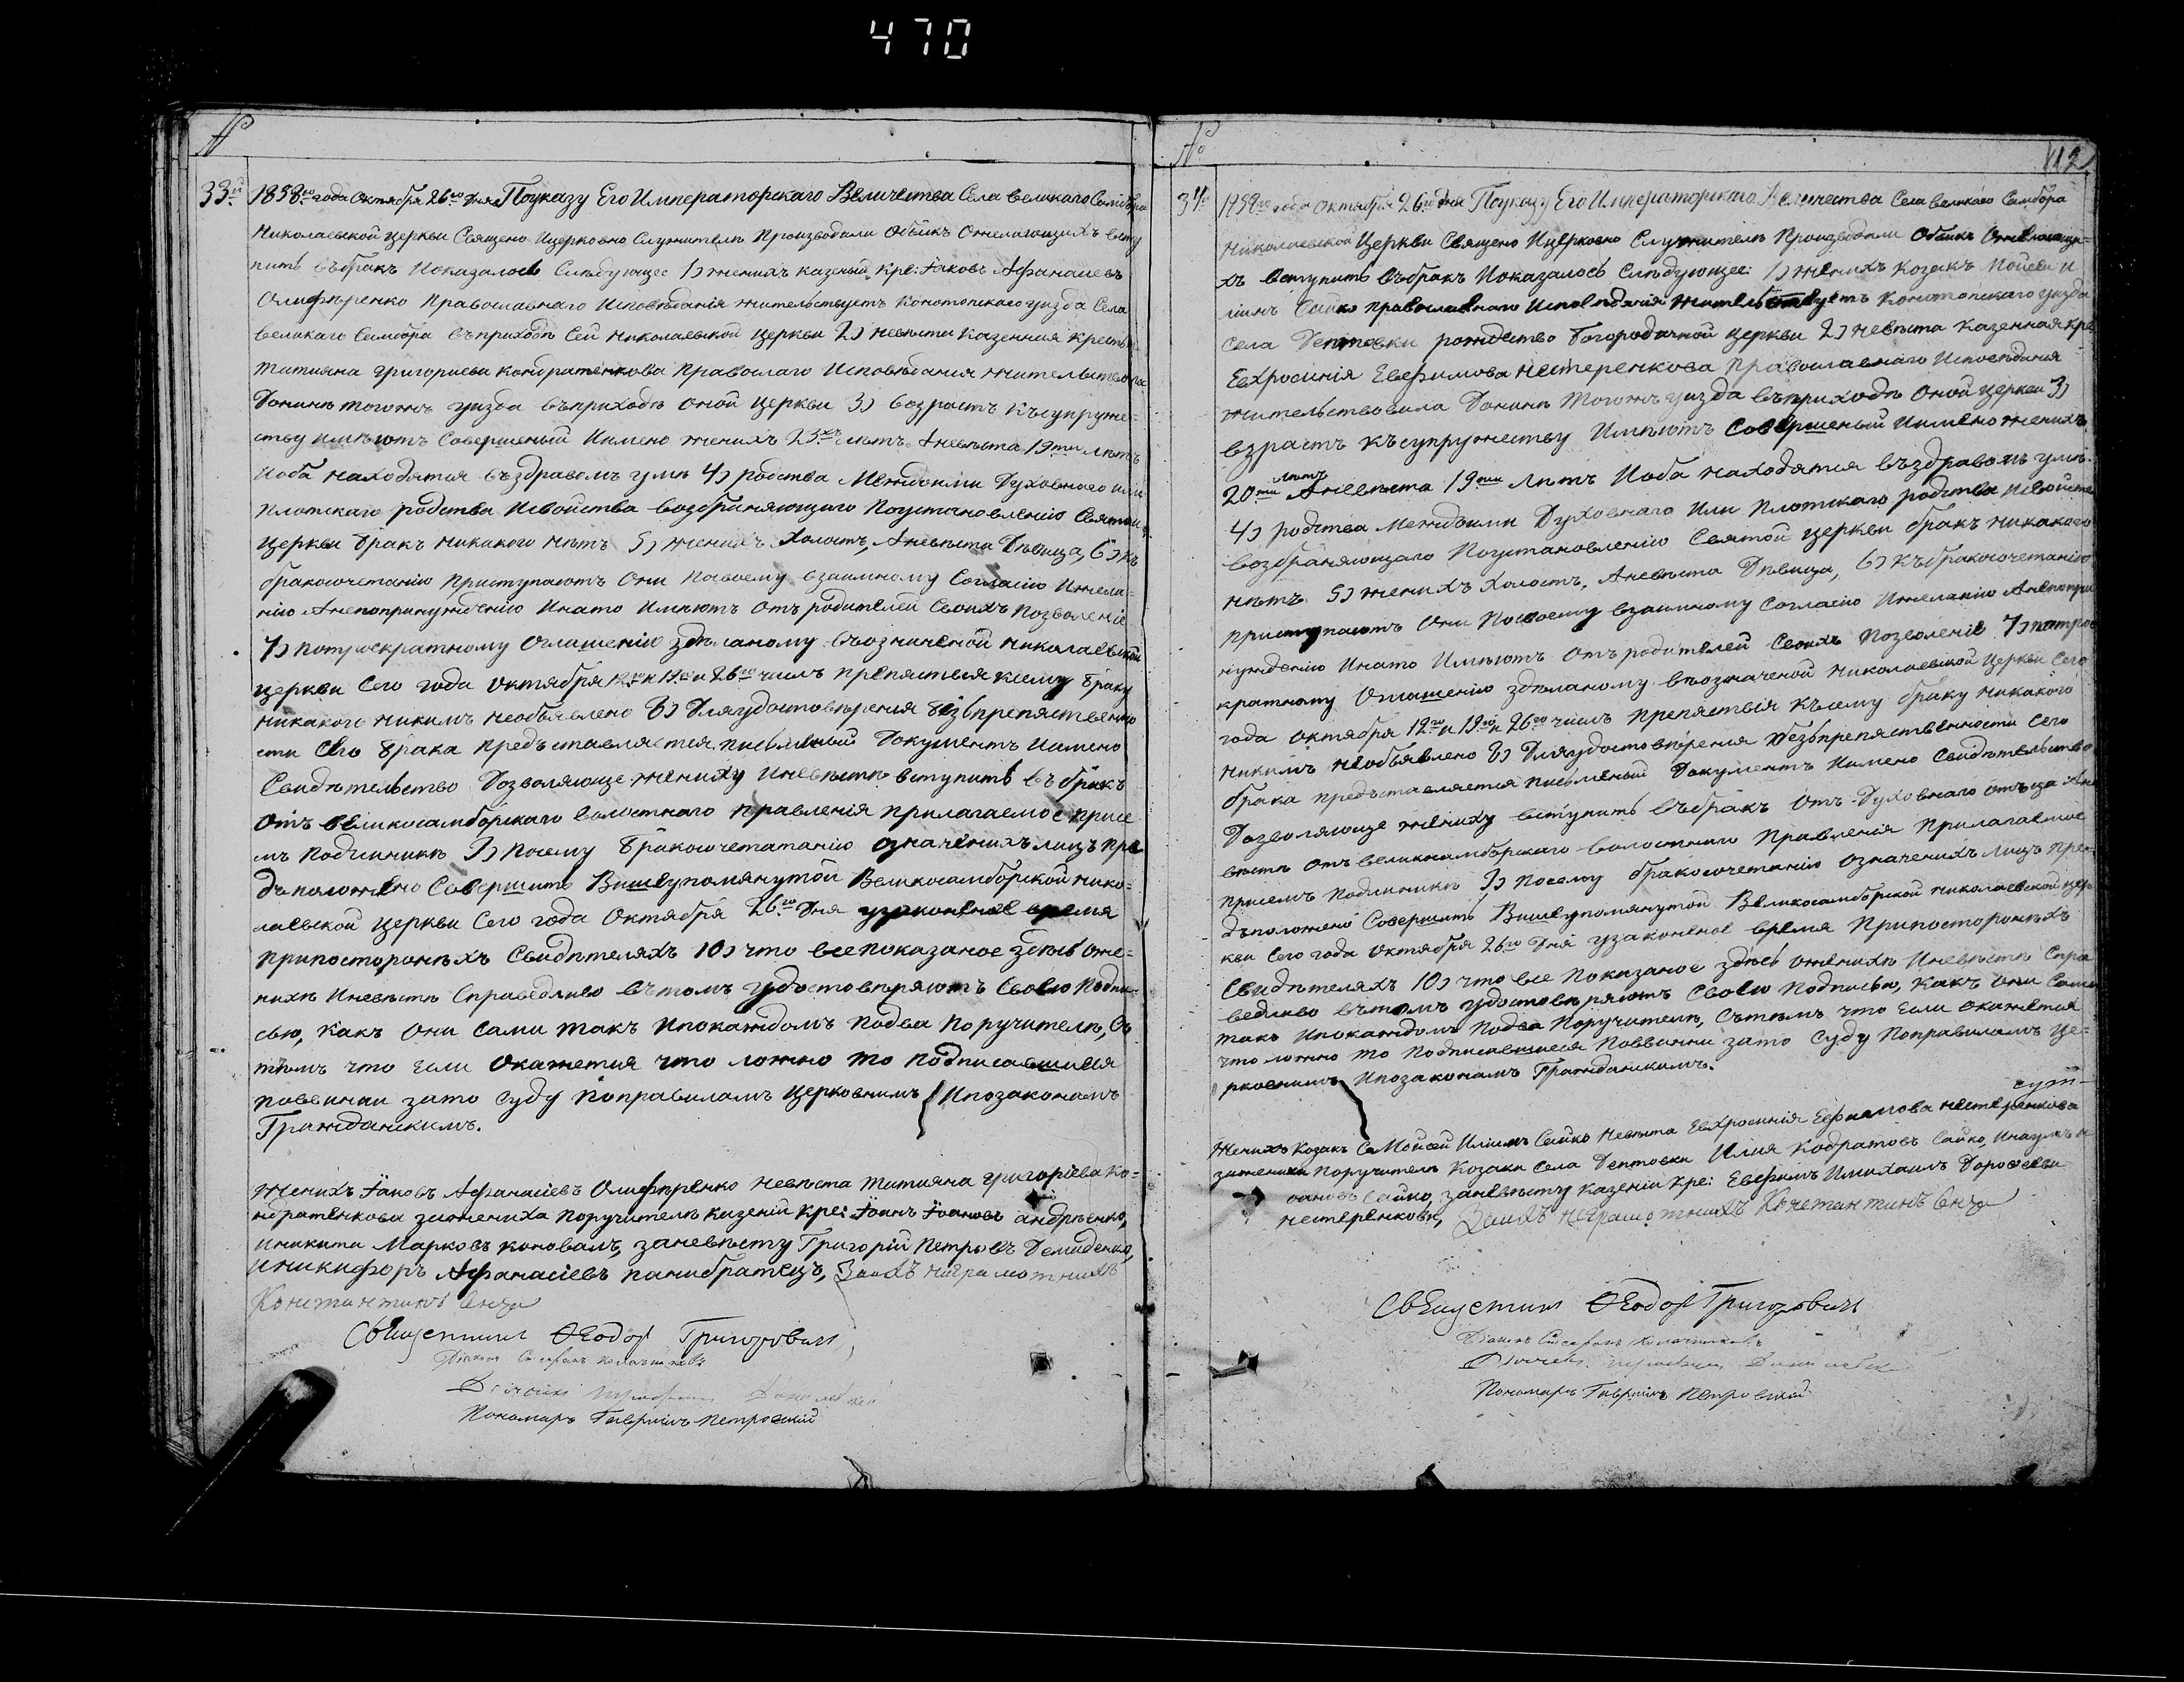 470
№
33й 1858го года Октября 26го дня По указу Его Императорскаго Величества Села великаго Самбора
Николаевской церкви Священо Ицерковно Служители Производили Обыск Ожелающихъ всту
пить въбракъ Ипоказалось Слѣдующее 1) женихъ казеный кре: Іаковъ Афанасіевъ
Олиферѣнко Православнаго Исповѣданія жительствуетъ Конотопскаго уизда Села
великаго Самбора въприходѣ Сей Николаевской церкви 2) невѣста казенная крестья
Татияна григориева кондратенкова Правослаго Исповѣдания жительствовала
Донинѣ тогожъ уизда въприходѣ оной церкви 3) возрастъ Къ супруже-
ству имѣютъ Совершеный Иимено женихъ 23хъ лѣтъ. Аневѣста 19ти лѣтъ
Иоба находятся въздравомъ умѣ 4) родства Междоими Духовнаго или
плотскаго родства Исвойства возбраняющаго Поустановленію Святой
церкви бракъ никакого нѣтъ 5) женихъ Холостъ, Аневѣста Дѣвица, 6) къ
бракосочетанію приступаютъ Они Посвоему взаимному Согласію Ижела-
нію Анепопринужденію Инато Имѣютъ Отъ родителей Своихъ позволеніе
7) потроекратному Оглашенію здѣланому въозначеной николаевской
церкви Сего года октября 12го и 19го и 26го числъ препяствія ксему браку
никакого никимъ необъявлено 8) Дляудостовѣрения безъпрепяствено
сти сего брака предъставляется писменый Документъ Иимено
Свидѣтельство Дозволяюще жениху Иневѣсте вступить въ бракъ
Отъ великосамборскаго волостнаго правленія прилагаемое присе
мъ подлиникѣ 9) Посему бракосочетатанію означенихъ лицъ пре
дъположено Совершить Вишеупомянутой Великосамборской Нико-
лаевской церкви Сего года Октября 26го Дня узаконеное время
припостороннѣхъ Свидѣтеляхъ 10) что все показаное здѣсь оже-
нихѣ Иневѣстѣ Справедливо въ томъ Удостовѣряютъ Своею Подпи-
сью, какъ Они Сами такъ Ипокаждомъ подва Поручителѣ, Съ
тѣмъ что Если Окажется что ложно то Подписавшиися
повѣнни зато Суду поправиламъ церковнимъ Ипозаконамъ
Гражданскимъ.
Женихъ Іаковъ Афанасіевъ Олиферѣнко Невѣста Татияна григоріева Ко-
ндратенкова зажениха поручителѣ казеній кре: Іоанъ Іоановъ андрѣенко,
Иникита Марковъ коновалъ, заневѣсту Григорій Петровъ Демиденко,
Иникифоръ Афанасіевъ панибратецъ, Заихъ неграмотнихъ
Константинъ
Священникъ Ѳеодоръ Григоровичъ
Діаконъ
Пономаръ Гавриилъ Петровский
№
112
34й 1858го года Октября 26го дня По указу Его Императорскаго Величества Села великаго Самбора
Николаевской Церкви Священо Ицерковно Служители Производили Обыскъ Ожелающи-
хъ вступить въбракъ Ипоказалось Слѣдующее: 1) женихъ Козакъ Мойсей И
ліинъ Сайко православнаго Исповѣданія жительствуетъ Конотопскаго уизда
Села Дептовки рождество Богородичной церкви 2) невѣста казенная кре
Евхросинія Евфимова Нестеренкова Православнаго Исповѣдания
жительствовала Донинѣ Тогожъ уизда въприходѣ Оной церкви 3)
взрастъ Къ супружеству Имѣютъ Совершеный Иимено женихъ
20ти лѣтъ Аневѣста 19ти лѣтъ Иоба находятся въздравомъ умѣ.
4) родства Междоими Духовнаго Или Плотскаго родства Исвойства
возбраняющаго Поустановленію Святой церкви бракъ никакого
нѣтъ 5) женихъ Холостъ, Аневѣста Дѣвица, 6) къбракосочетанію
приступаютъ Они Посвоему взаимному Согласію Ижеланію Анепопри
нужденію Инато Имѣютъ Отъродителей Своихъ Позволеніе 7) потрое
кратному Оглашенію здѣланому въозначеной Николаевской церкви Сего
года октября 12го и 19го и 26го числъ препяствія къ сему браку никакого
никимъ необъявлено 8) Дляудостовѣрения безъпрепяственности Сего
брака предъставляется письменый Документъ Иимено Свидѣтельство
Дозволяюще жениху вступить въбракъ Отъ Духовнаго отъца Ане
вѣстѣ Отъвеликосамборскаго волостнаго Правленія Прилагаемое
присемъ подлиникѣ 9) Посему бракосочетанію Означенихъ лицъ пре-
дъположено Совершить Вишеупомянутой Великосамборской николаевской цер
кви Сего года Октября 26го Дня узаконеное время Припостороннѣхъ
Свидѣтеляхъ 10) что все Показаное здѣсь ожених&#1123; Иневѣстѣ Спра
ведливо вътомъ удостовѣряютъ Своею Подписью, какъ Они Сами
такъ Ипокаждомъ Подва Поручителѣ, Сътѣмъ что Если окажется
что ложно то Подписавшиеся повѣнни зато Суду Поправиламъ це-
рковнимъ Ипозаконамъ Гражданскимъ.
Женихъ Козакъ Мойсей Иліинъ Сайко Невѣста Евхросинія Ефимова Нестеренкова
зажениха Поручителѣ Козаки Села Дептовки Илия Кодратовъ Сайко, Инаумъ И
оановъ Сайко, заневѣсту казеніи кре: Евфимъ Имихаилъ Дорофеевы
Нестеренкови, Заихъ неграмотнихъ Констентинъ
Священникъ Ѳеодоръ Григоровичъ
Діаконъ
Пономаръ Гавриилъ Петровский